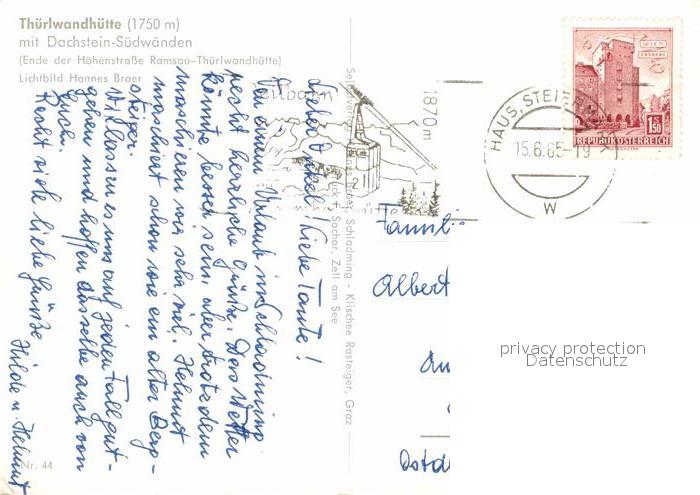 Thürlwandhütte (1750 m)
mit Dachstein-Südwänden
(Ende der Höhenstraße Ramsau—Thürlwandhütte)
Lichtbild Hannes Broer
Lieber Onkel! Liebe Tante!
Von einem Urlaub in Schladming
recht herzliche Grüße. Das Wetter
könnte besser sein, aber trotzdem
marschieren wir sehr viel. Helmut
marschiert schon wie ein alter Berg-
steiger.
Wir lassen es uns auf jeden Fall gut-
gehen und hoffen dasselbe auch von
Euch.
Recht viele liebe Grüße
Hilde u. Helmut
Nr. 44
Schladming - Klischee Rasteiger, Graz
Sochor, Zell am See
eilbahn
1870 m
2
HAUS, STEIERM
15.6.65-19
W
WIEN
ERDBERG
1.50
REPUBLIK ÖSTERREICH
Famili
Albert
privacy protection
Datenschutz